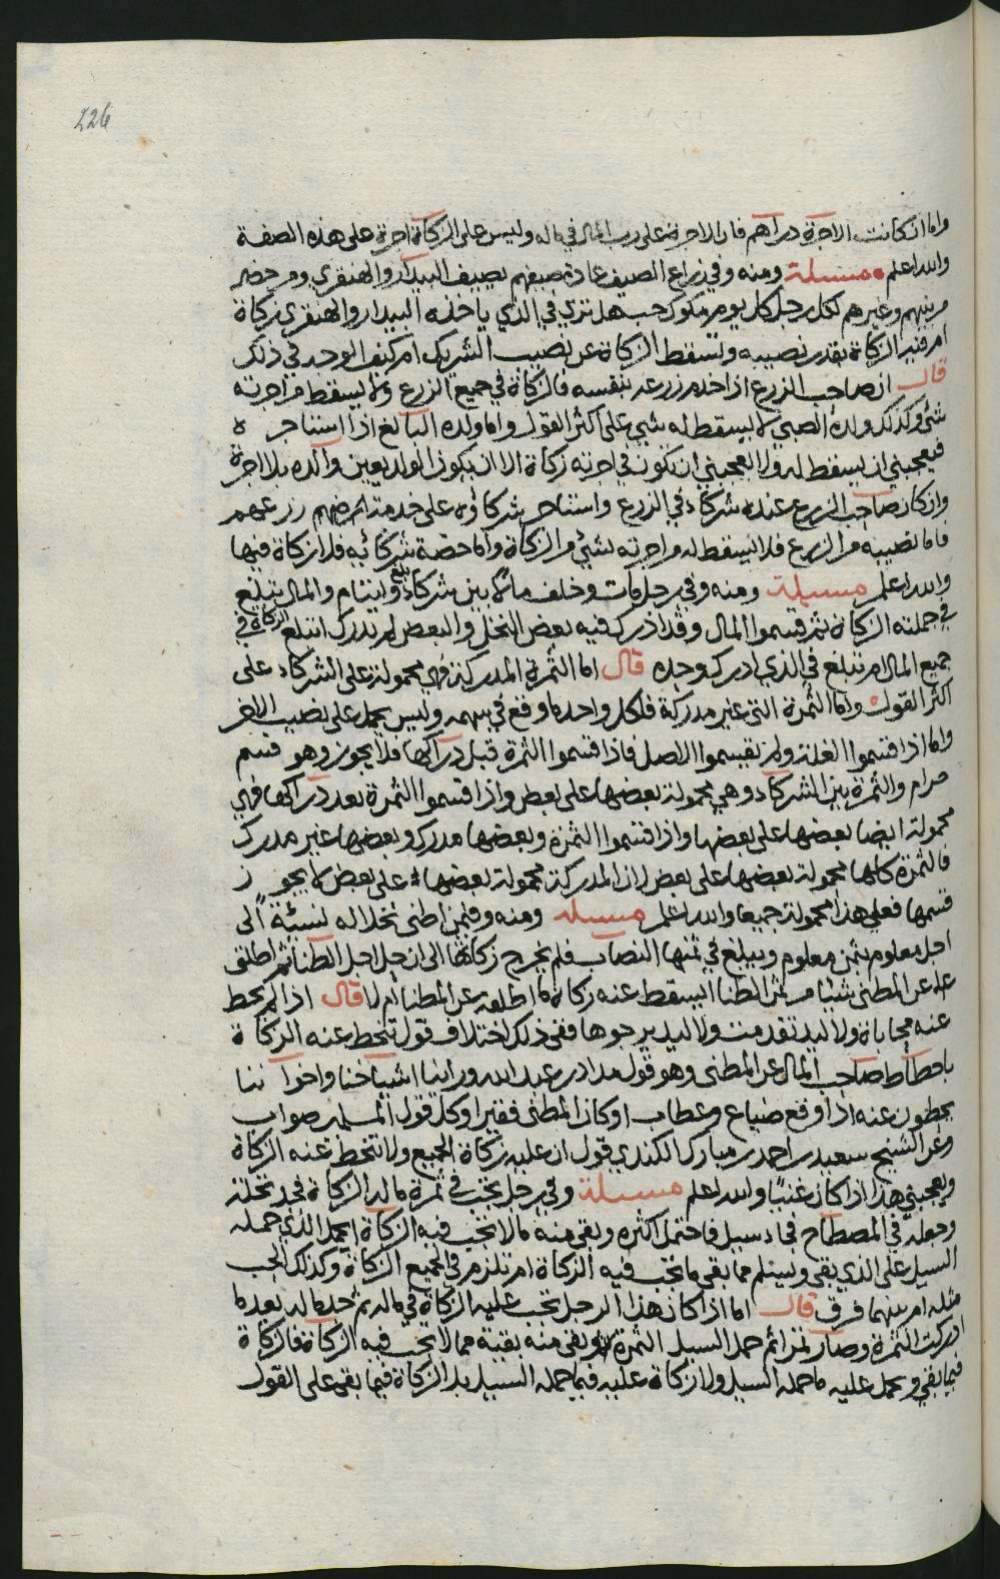 226
واما ان كانت الاجرة دراهم فان الاجرة على رب المال في ماله وليس على الزكاة اجرة على هذه الصفة
والله اعلم مسئلة ومنه وفي زراع الصيف عادة صيفهم يصيف البيدار والهنقري ومن حضر
من بينهم وغيرهم لكل رجل كل يوم مكوك حب هل ترى في الذي ياخذه البيدار والهنقري زكاة
ام فيه الزكاة بقدر نصيبه وتسقط الزكاة عن نصيب الشريك ام كيف الوجه في ذلك
قال ان صاحب الزرع اذا خدم زرعه بنفسه فالزكاة في جميع الزرع ولا يسقط من اجرته
شئ وكذلك ولده الصبي لا يسقط له شئ على اكثر القول واما ولده البالغ اذا استاجره
فيعجبني ان يسقط له ولا يعجبني ان تكون في اجرته زكاة الا ان يكون الولد يعين والده بلا اجرة
وان كان صاحب الزرع عنده شركاء في الزرع واستاجره شركاؤه على خدمة زرعهم
فاما نصيبه من الزرع فلا يسقط له من اجرته شئ من الزكاة واما حصة شركائه فلا زكاة فيها
والله اعلم مسئلة ومنه وفي رجل مات وخلف مالا بين شركاء بلغ وايتام والمال تبلغ
في جملته الزكاة ثم قسموا المال وقد ادرك فيه بعض النخل والبعض لم يدرك اتبلغ الزكاة في
جميع المال ام تبلغ في الذي ادرك وحده قال اما الثمرة المدركة فهي محمولة على الشركاء على
اكثر القول واما الثمرة التي غير مدركة فلكل واحد ما وقع في سهمه وليس يحمل على نصيب الاخر
واما اذا قسموا الغلة ولم يقسموا الاصل فاذا قسموا الثمرة قبل دراكها فلا يجوز وهو قسم
حرام والثمرة بين الشركاء وهي محمولة بعضها على بعض واذا قسموا الثمرة بعد دراكها فهي
محمولة ايضا بعضها على بعضها واذا قسموا الثمرة وبعضها مدرك وبعضها غير مدرك
فالثمرة كلها محمولة بعضها على بعض لان المدركة محمولة بعضها على بعض لا يجوز
قسمها فعلى هذا محمولة جميعا والله اعلم مسئلة ومنه وفيمن اطنى نخلا له نسيئة الى
اجل معلوم بثمن معلوم ويبلغ في ثمنها النصاب فلم يخرج زكاتها الى ان حل اجل الطنا ثم اطلق
عن المطني شيئا من ثمن الطنا ايسقط عنه زكاة ما اطلقه عن المطنا ام لا قال اذا لم يحط
عنه محاباة ولا ليد تقدمت ولا ليد يرجوها ففي ذلك اختلاف قول تنحط عنه الزكاة
باحطاط صاحب المال عن المطني وهو قول مداد بن عبد الله وراينا اشياخنا واخواننا
يحطون عنه اذا وقع ضياع وعطاب او كان المطني فقيرا وكل قول المسلمين صواب
وعن الشيخ سعيد بن احمد بن مبارك الكندي قول ان عليه زكاة الجميع ولا تنحط عنه الزكاة
ويعجبني هذا اذا كان غنيا والله اعلم مسئلة وفي رجل تجب في ثمرة ماله الزكاة فجد نخله
وجعله في المصطاح فجاء سيل فاحتمل اكثره وبقي منه ما لا تجب فيه الزكاة ايحمل الذي حمله
السيل على الذي بقي ويسلم مما بقي ما تجب فيه الزكاة ام تلزم في الجميع الزكاة وكذلك الحب
مثله ام بينهما فرق قال اما اذا كان هذا الرجل تجب عليه الزكاة في ماله ثم جد ماله بعد ما
ادركت الثمرة وصار تمرا ثم حمل السيل الثمرة وبقي منه بقية مما لا تجب فيه الزكاة فالزكاة
فيما بقي ويحمل عليه ما حمله السيل ولا زكاة عليه فيما حمله السيل بل الزكاة فيما بقي على القول